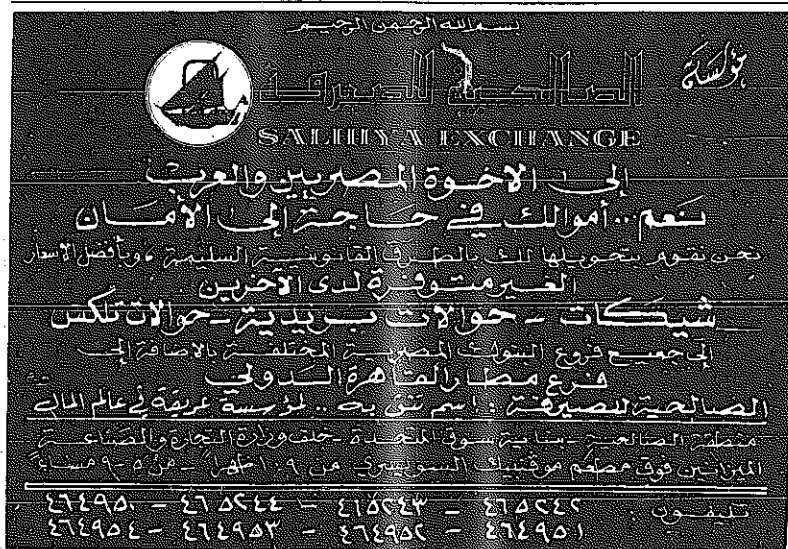 بسم الله الرحمن الرحيم
مؤسسة
الصالحية للصيرفة
SALHIYA EXCHANGE
إلى الاخوة المصريين والعرب
نعم.. أموالك في حاجة إلى الأمان
نحن نقوم بتحويلها لك بالطرق القانونية السليمة، وبأفضل الاسعار
الغير متوفرة لدى الآخرين
شيكات - حوالات بريدية - حوالات تلكس
إلى جميع فروع البنوك المصرية المختلفة بالاضافة إلى
فرع مطار القاهرة الدولي
الصالحية للصيرفة.. اسم تثق به.. لمؤسسة عريقة في عالم المال
منطقة الصالحية - بناية سوق المتحدة - خلف وزارة التجارة والصناعة
الميزانين فوق مطعم موفنبيك السويسري من ٩ - ١ ظهراً - من ٥ - ٩ مساءً
تليفون: ٤٦٥٢٤٢ - ٤٦٥٢٤٣ - ٤٦٥٢٤٤ - ٤٦٤٩٥٠
٤٦٤٩٥١ - ٤٦٤٩٥٢ - ٤٦٤٩٥٣ - ٤٦٤٩٥٤